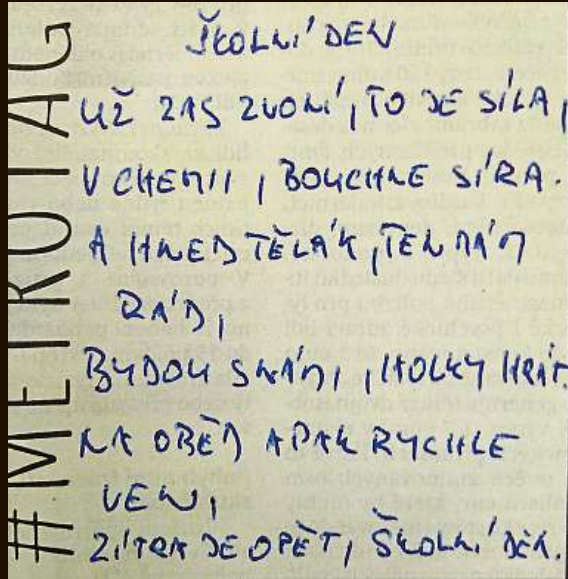 ŠKOLNÍ DEN
UŽ ZAS ZVONÍ, TO JE SÍLA,
V CHEMII, BOUCHNE SÍRA.
A HNED TĚLÁK, TEN MÁM
RÁD,
BUDOU S NÁMI, HOLKY HRÁT.
NA OBĚD A PAK RYCHLE
VEN,
ZÍTRA JE OPĚT, ŠKOLNÍ DEN.
#MEROTAG